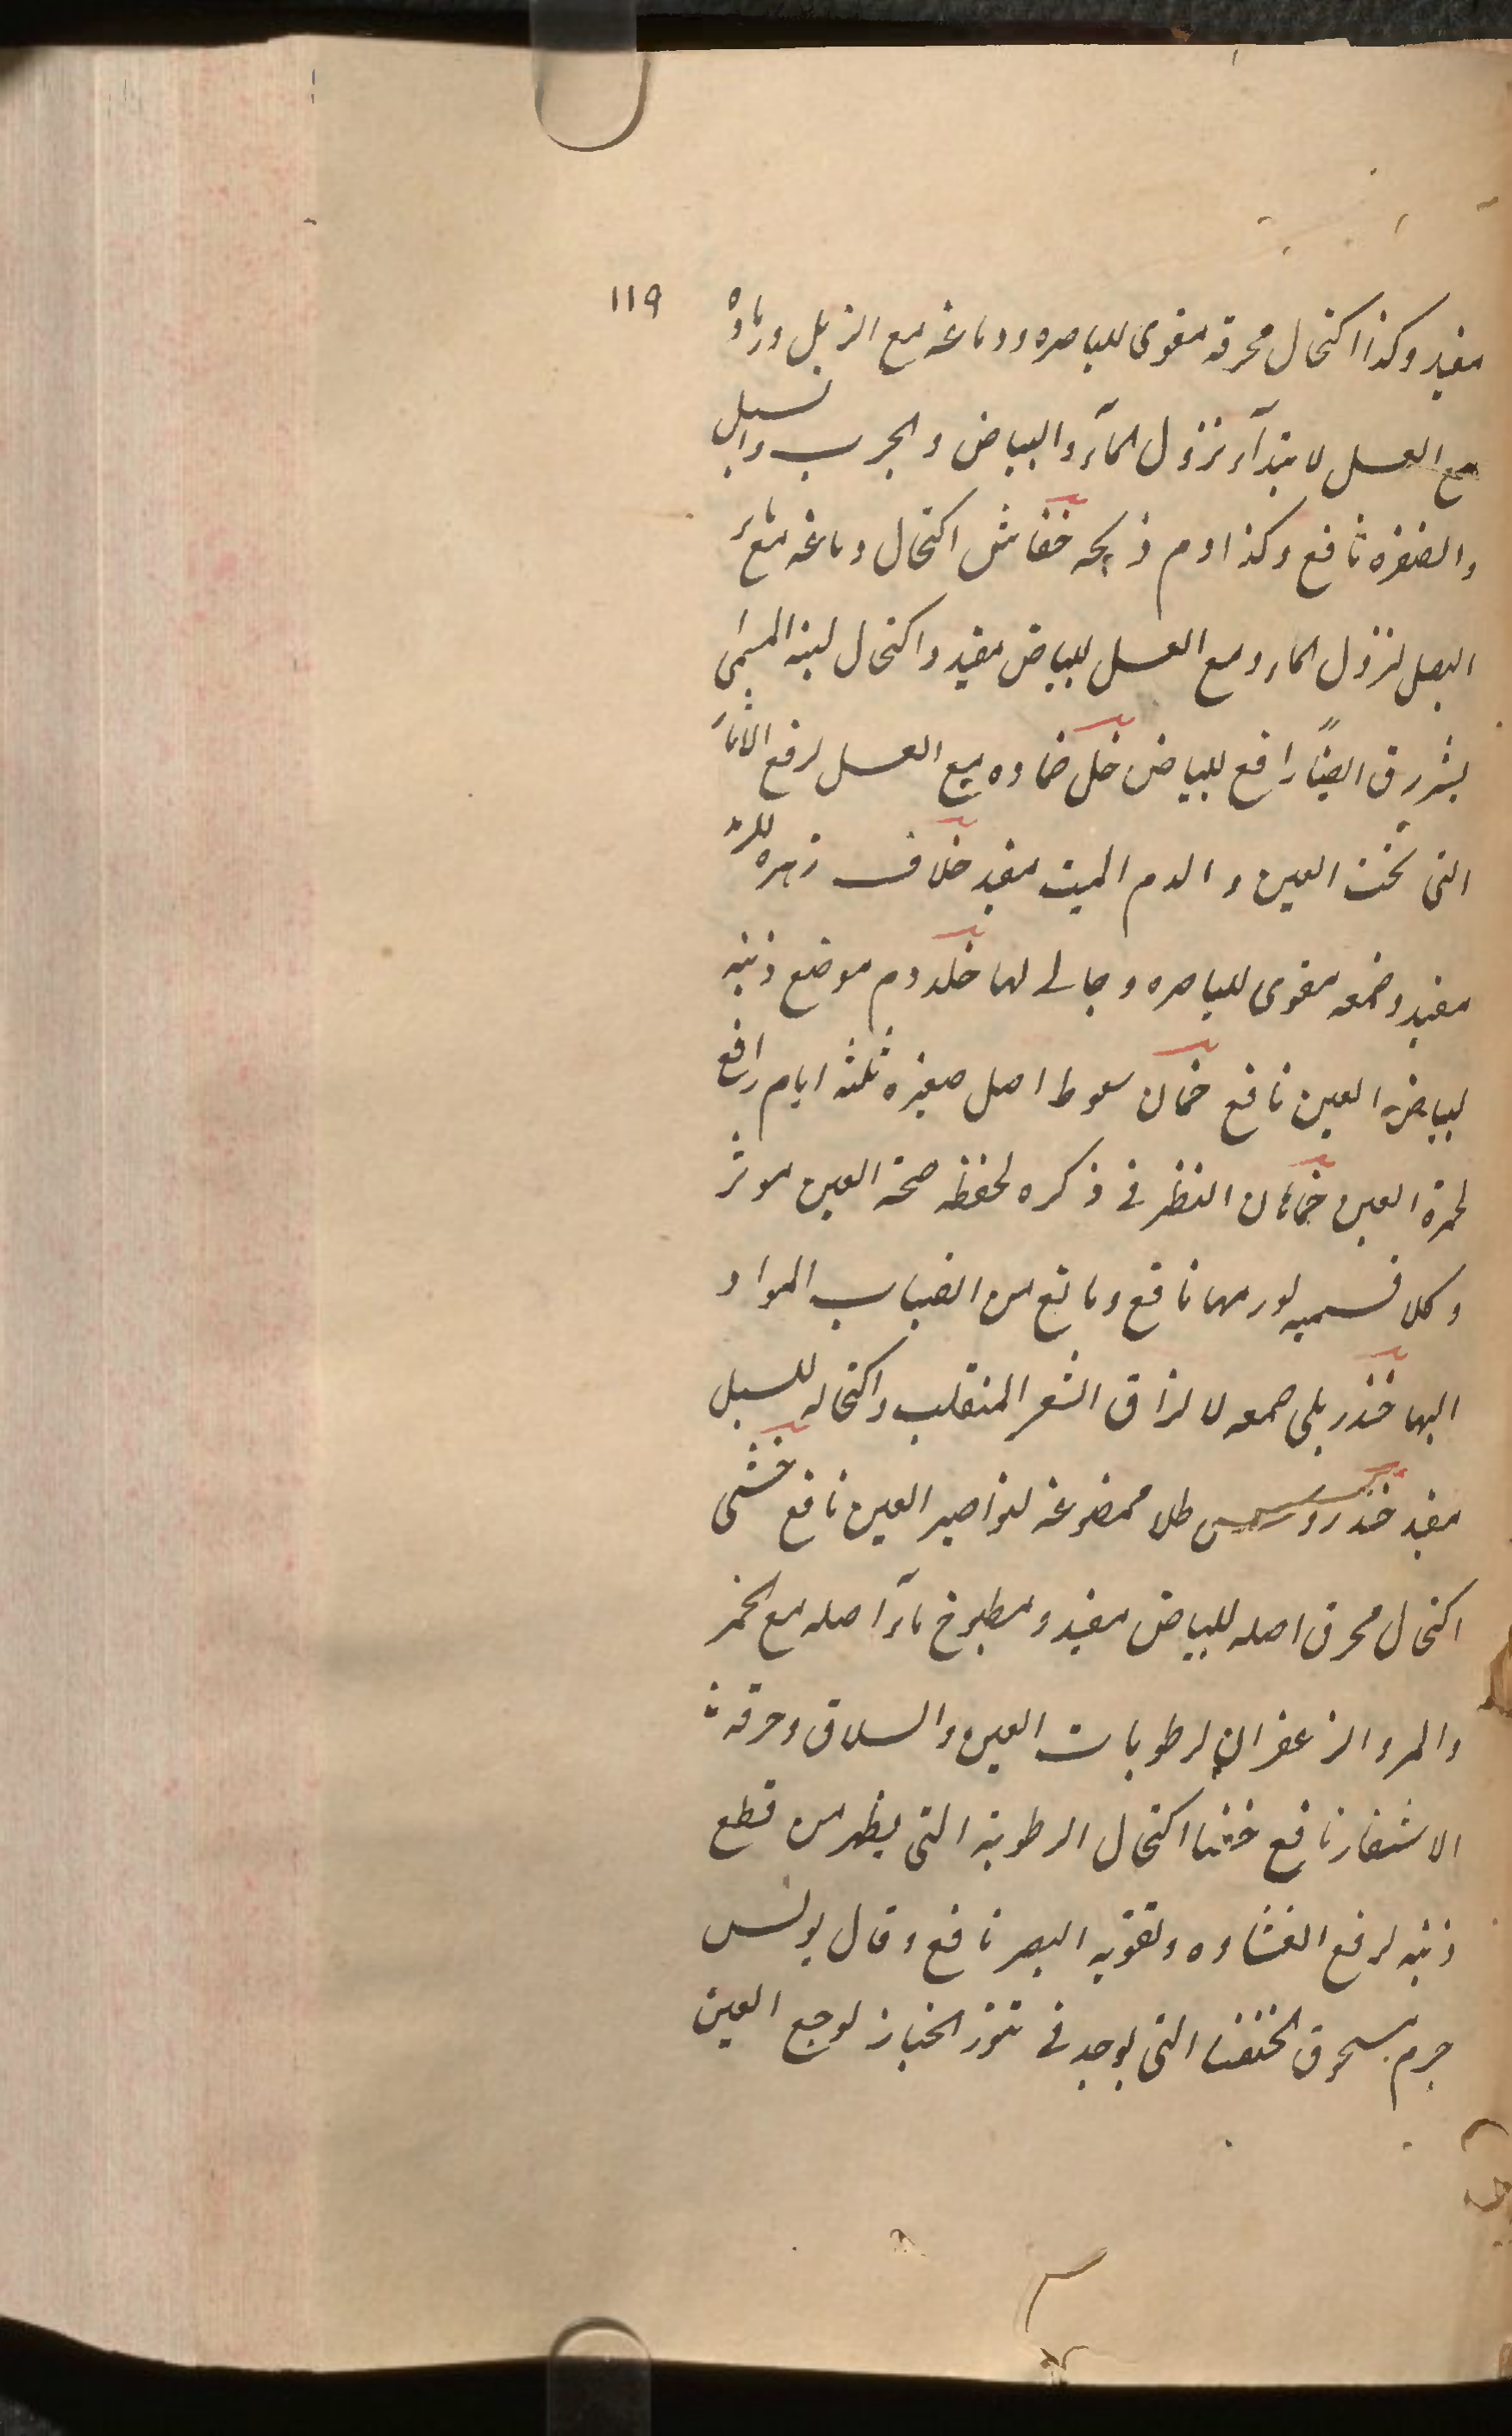 ١١٩
مفيد وكذا اكتحال محرقه مقوى للباصره ودماغه مع الزبل ورماده
مع العسل لابتدآء نزول المآء والبياض والجرب والسبل
والضفره نافع وكذا دم ذبحه خفاش اكتحال دماغه مع مآء
البصل لنزول الماء ومع العسل للبياض مفيد واكتحال لبنه المسمى
بشررق ايضًا رافع للبياض خل ضماده مع العسل لرفع الاثار
التى تحت العين والدم الميت مفيد خلاف زهره للرمد
مفيد وصمغه مقوى للباصره وجالى لها خلد دم موضع ذنبه
لبياض العين نافع خمان سعوط اصل صغيره ثلثه ايام رافع
لحمرة العين خماهان النظر فى ذكره لحفظ صحة العين موثر
وكلا قسميه لورمها نافع ومانع من انصباب المواد
اليها خندريلى صمغه لالزاق الشعر المنقلب واكتحاله للسبل
مفيد خندروس طلا ممضوغه لنواصير العين نافع خنثى
اكتحال محرق اصله للبياض مفيد ومطبوخ مآء اصله مع الخمر
والمر والزعفران لرطوبات العين والسلاق وحرقة
الاشفار نافع خنفسا اكتحال الرطوبة التى يظهر من قطع
ذنبه لرفع الغشاوه وتقويه البصر نافع وقال يونس
جرم مسحوق الخنفسا التى يوجد فى تنور الخباز لوجع العين